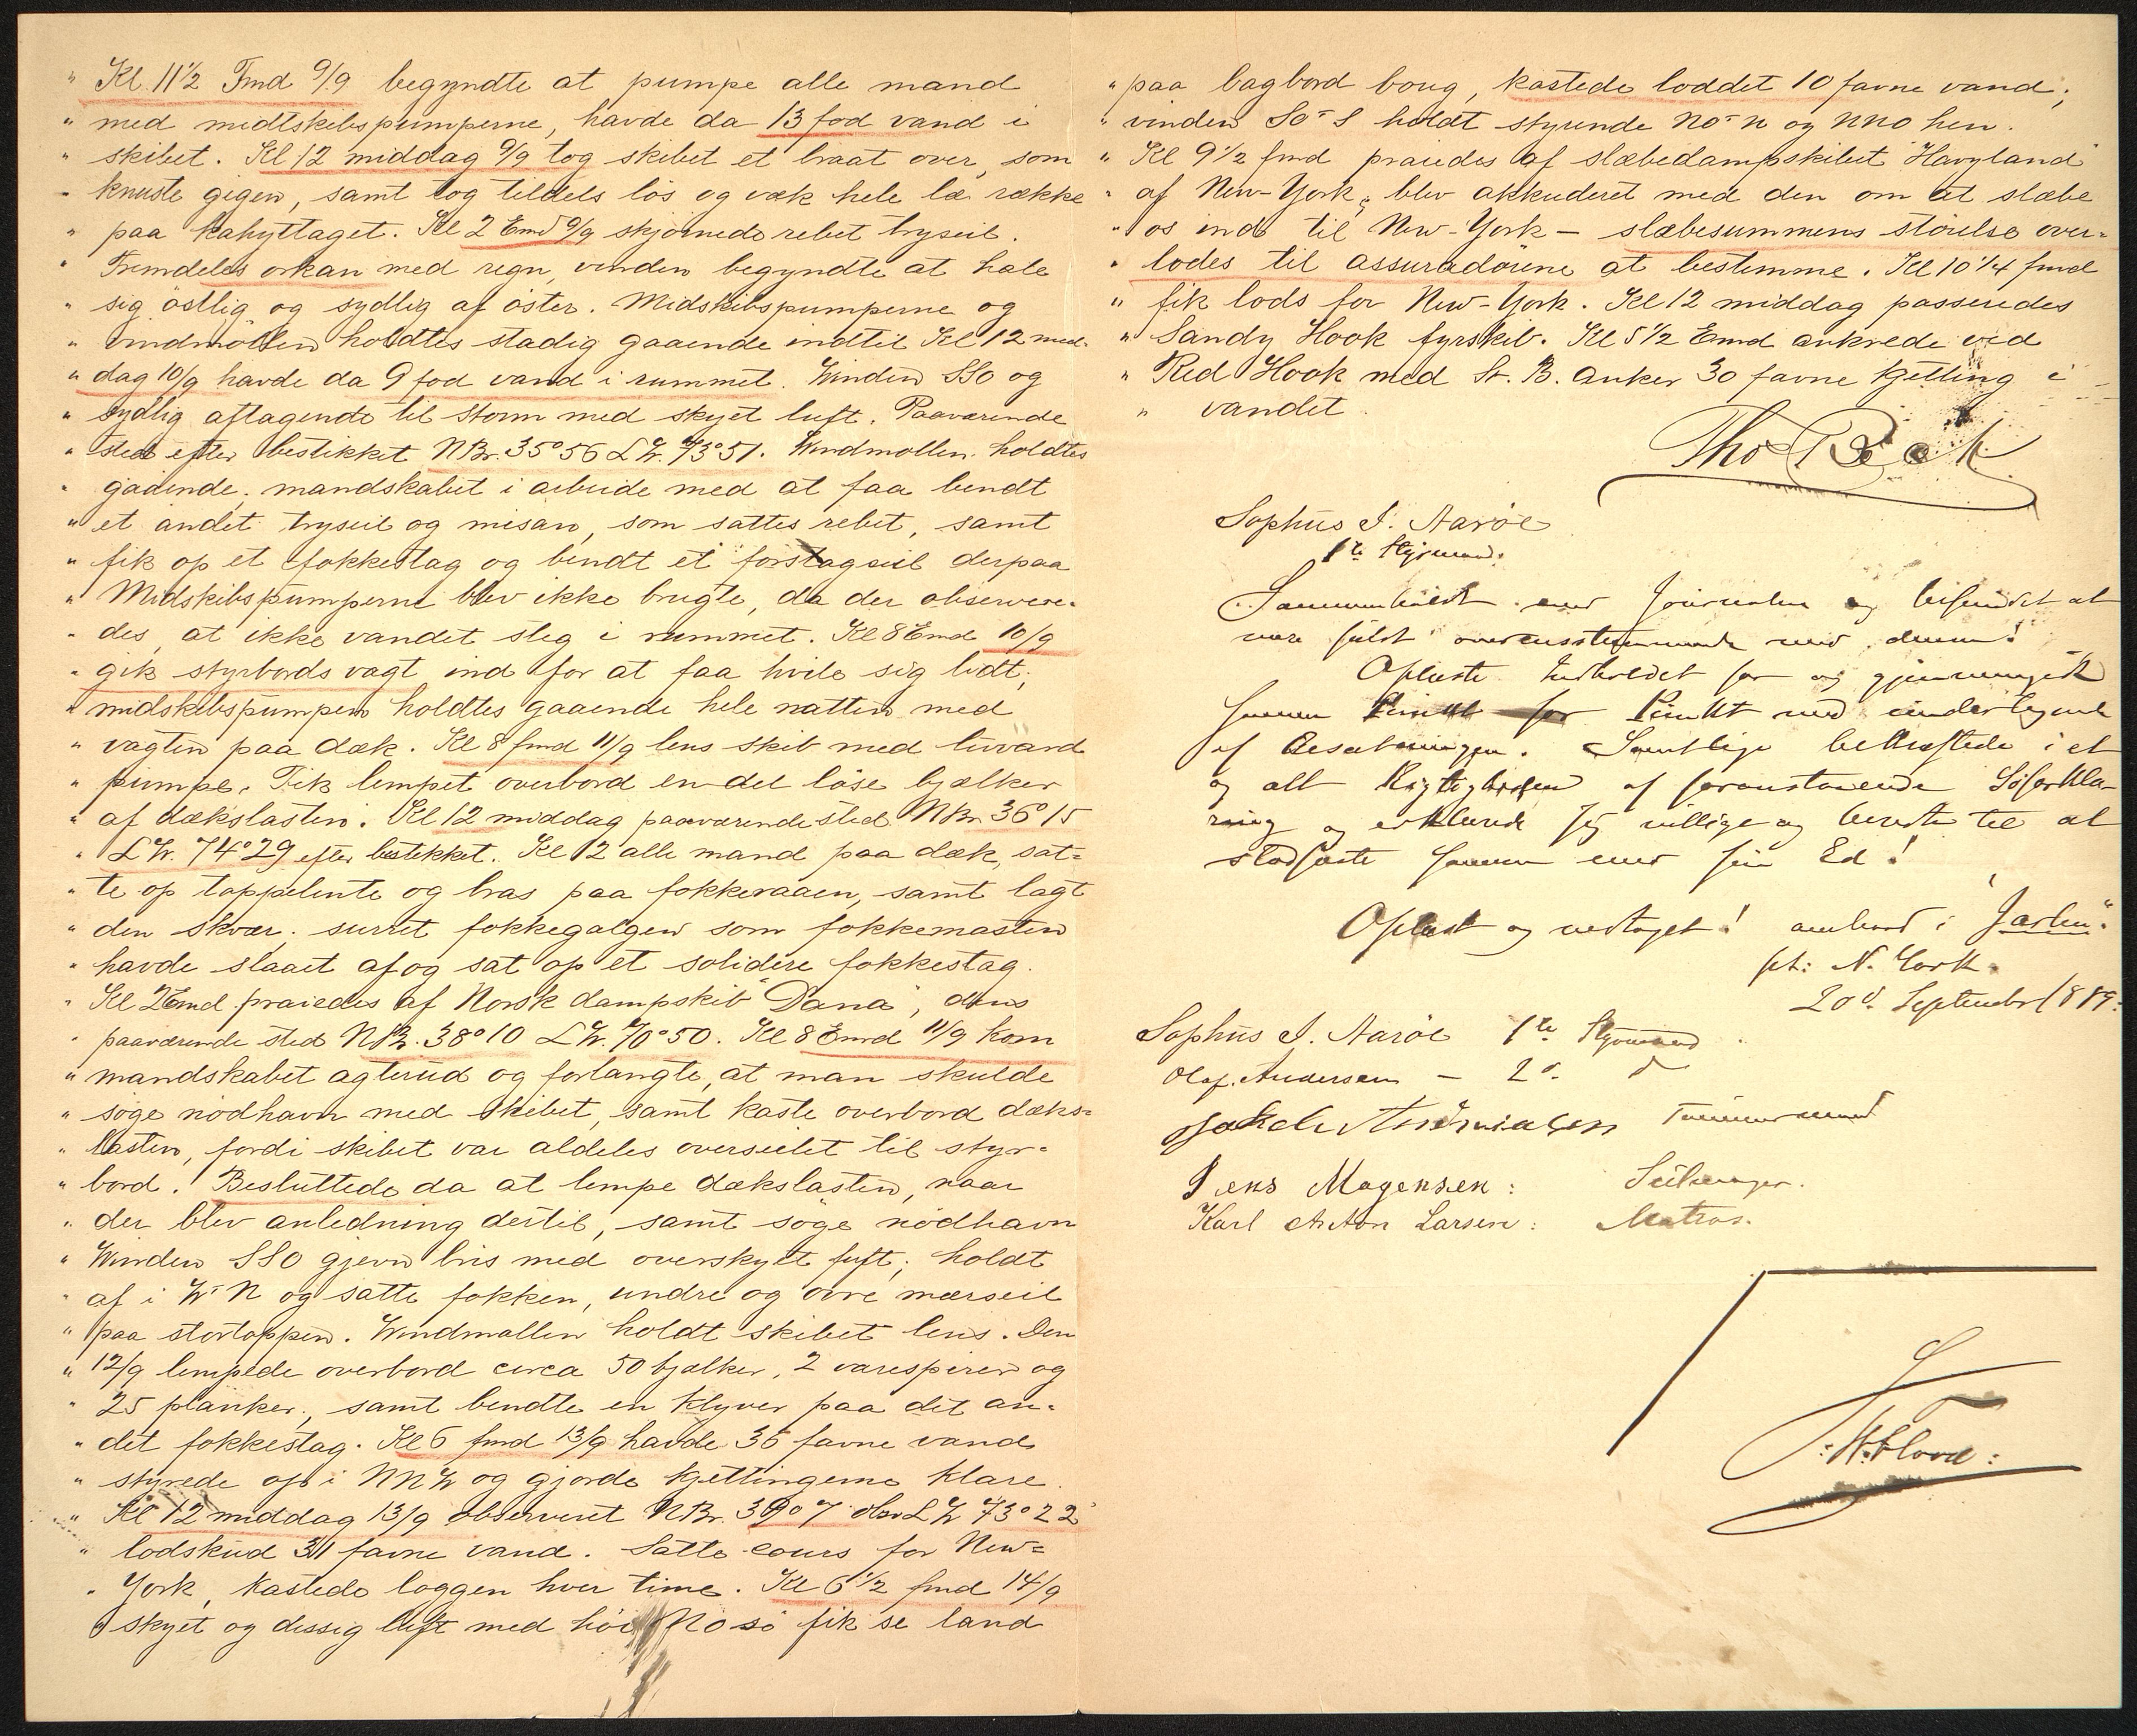 " Kl. 11½ Fmd 9/9 begyndte at pumpe alle mand
" med midtskibspumperne, havde da 13 fod vand i
" skibet. Kl 12 middag 9/9 tog skibet et braat over, som
" knuste gigen, samt tog tildels lös og væk hele læ række
" paa kahyttaget. Kl 2 Emd 9/9 skjörnede rebet tryseil.
" Fremdeles orkan med regn, vinden begyndte at hale
" sig östlig og sydlig af öster. Midskibspumperne og
" vindmöllen holdtes stadig gaaende indtil Kl 12 mid-
" dag 10/9 havde da 9 fod vand i rummet. Winden SSO og
" sydlig aftagende til storm med skyet luft. Paaværende
" sted efter bestikket NBr. 35°56 LW. 73°51. Windmollen holdtes
" gaaende, mandskabet i arbeide med at faa bendt
" et andet tryseil og misan, som sattes rebet, samt
" fik op et fokkestag og bendt et forstagseil derpaa
" Midskibspumperne blev ikke brugte, da der observere-
" des, at ikke vandet steg i rummet. Kl 8 Emd 10/9
" gik styrbords vagt ind for at faa hvile sig lidt;
" midskibspumpen holdtes gaaende hele natten med
" vagten paa dæk. Kl 8 fmd 11/9 lens skib med luvard
" pumpe. Fik lempet overbord en del löse bjælker
" af dækslasten. Kl 12 middag paaværende sted NBr. 36°15
" LW. 74°29 efter bestikket. Kl 12 alle mand paa dæk, sat=
" te op toppelente og bras paa fokkeraaen, samt lagt
" den skvær; surret fokkegalgen som fokkemasten
" havde slaaet af og sat op et solidere fokkestag.
" Kl 2 Emd praiedes af Norsk dampskib "Dana", dens
" paaværende sted NBr. 38°10 LW. 70°50. Kl 8 Emd 11/9 kom
" mandskabet agterud og forlangte, at man skulde
" söge nödhavn med skibet, samt kaste overbord dæks=
" lasten, fordi skibet var aldeles overseilet til styr-
" bord. Besluttede da at lempe dækslasten, naar
" der blev anledning dertil, samt söge nödhavn
" Winden SSO gjevn bris med overskyet luft; holdt
" af i W-N og satte fokken, undre og övre mærseil
" paa stortoppen. Windmollen holdt skibet lens. Den
" 12/9 lempede overbord circa 50 bjælker, 2 varespirer og
" 25 planker, samt bendte en klyver paa det an-
" det fokkestag. Kl 6 fmd 13/9 havde 36 favne vand
" styrede op i NNW og gjorde kjettingerne klare.
" Kl 12 middag 13/9 observeret NBr. 39°7 obs LW 73°22
" lodskud 31 favne vand. Satte cours for New=
" York, kastede loggen hver time. Kl 6½ fmd 14/9
" skyet og dissig luft med höi NO sö fik se land
" paa bagbord boug, kastede loddet 10 favne vand;
" vinden SO-S holdt styrende NO-N og NNO hen.
" Kl 9½ fmd praiedes af slæbedampskibet "Havyland"
" af New-York; blev akkuderet med den om at slæbe
" os ind til New-York – slæbesummens störelse over-
" lodes til assuradörerne at bestemme. Kl 10¼ fmd
" fik lods for New-York. Kl 12 middag passeredes
" Sandy Hook fyrskib. Kl 5½ Emd ankrede ved
" Red Hook med St. B. anker 30 favne kjetting i
" vandet
Tho Beck
Sophus J. Aaröe
1te Styrmand.
Sammenholdt med Journalen og befundet at
være fuldt overensstemmende med denne!
Oplæste Indholdet for og gjennemgik
samme Punkt for Punkt med undertegnede
af Besætningen. Samtlige bekræftede i et
og alt Rigtigheden af foranstaaende Söforkla-
ring og erklærede sig villige og berede til at
stadfæste samme med sin Ed!
Oplæst og vedtaget! ombord i "Jarlen"
pt: N. York.
20d. September 1889.
Sophus J. Aaröe 1te Styrmand
Olaf. Andersen – 2d. d
Jakob Andreasen Tømmermand
Jens Mogensen: Seilmager.
Karl Anton Larsen: Matros.
:W. Flood: